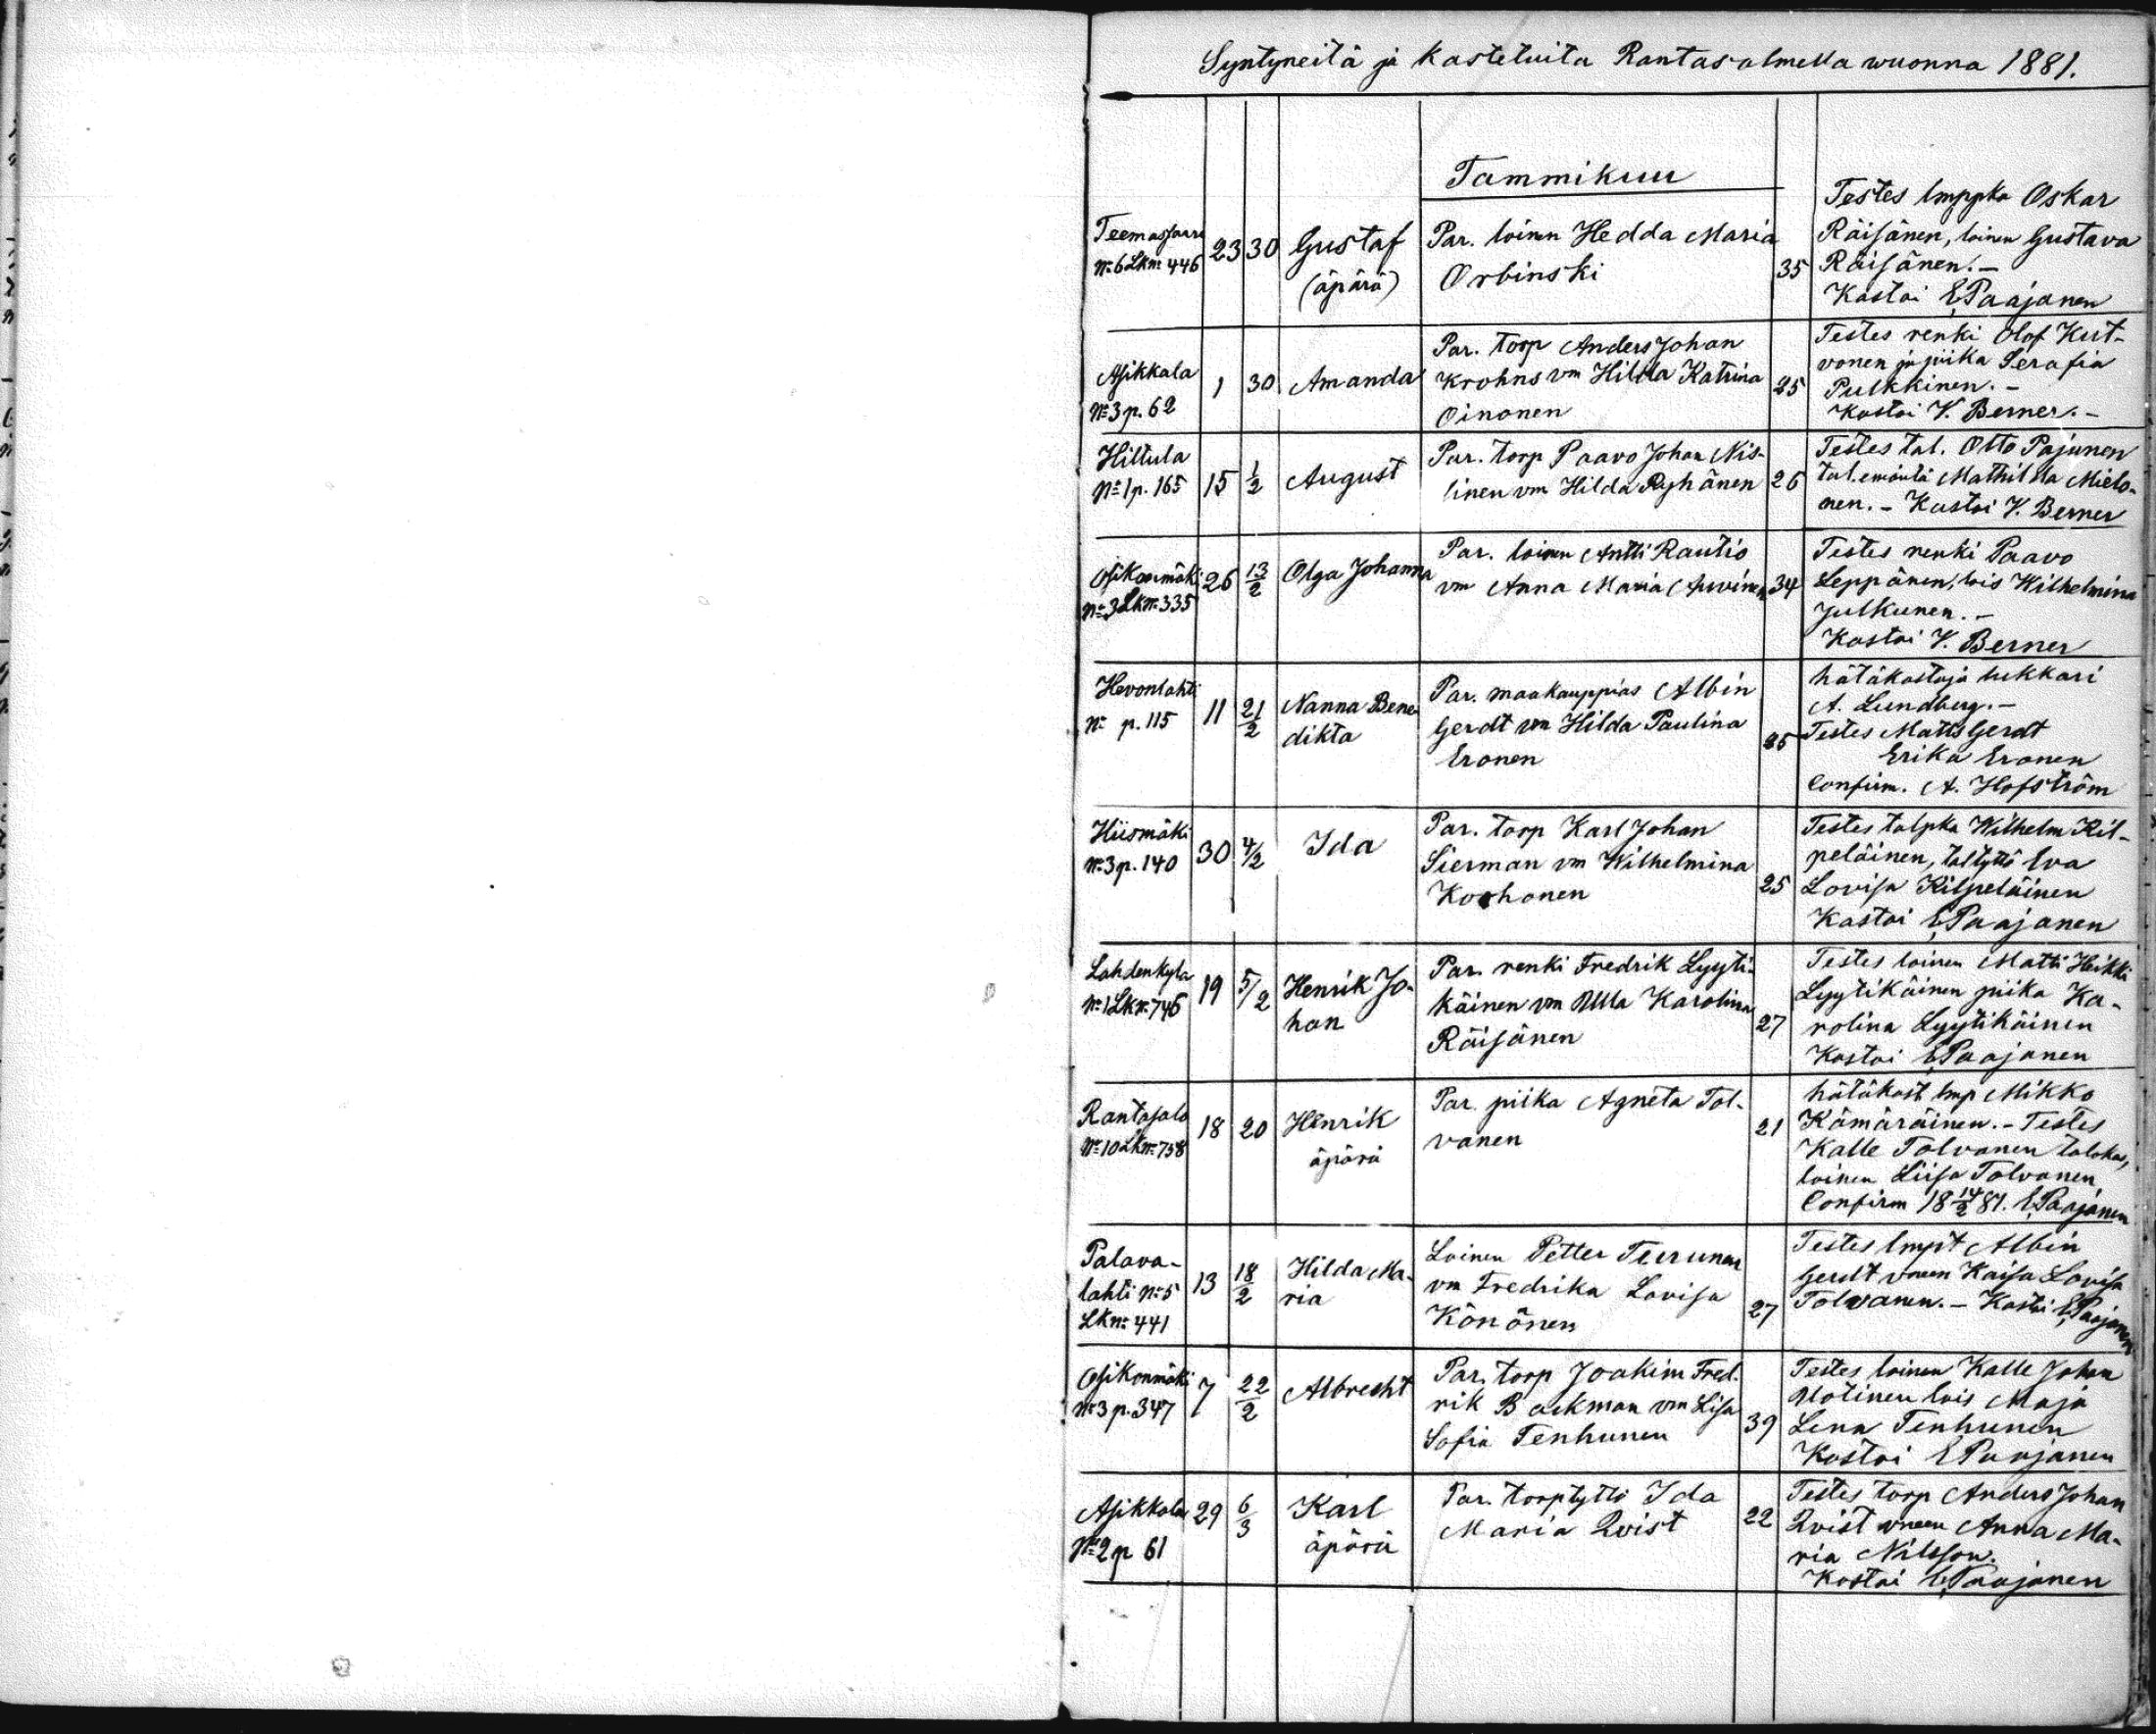 Syntyneitä ja Kasteluita Rantasalmella wuonna 1881.
Tammikuu
Teemassaari
№ 6 Lkn: 446
23
30
Gustaf
(äpärä)
Par. loinen Hedda Maria
Orbinski
35
Testes lmppka Oskar
Räisänen, loinen Gustava
Räisänen. -
Kastoi E. Paajanen
Asikkala
№ 3 p. 62
1
30
Amanda
Par. torp Anders Johan
Krohns vm Hilda Katrina
Oinonen
25
Testes renki Olof Kut-
vonen ja piika Serafia
Pulkkinen. -
Kastoi V. Berner. -
Hiltula
№ 1 p. 165
15
1/2
August
Par. torp Paavo Johan Nis-
sinen vm Hilda Ryhänen
26
Testes tal. Otto Pajunen
tal. emäntä Mathilda Mielo-
nen. - Kastoi V. Berner
Osikonmäki
№ 3 Lkn: 335
26
13/2
Olga Johanna
Par. loinen Antti Rautio
vm Anna Maria Auvinen
34
Testes renki Paavo
Leppänen, lois Wilhelmina
Julkunen. -
Kastoi V. Berner
Hevonlahti
№ p. 115
11
21/2
Nanna Bene-
dikta
Par. maakauppias Albin
Gerdt vm Hilda Paulina
Eronen
25
hätäkastaja lukkari
A. Lundberg. -
Testes Matts Gerdt
Erika Eronen
Confirm. A. Hofström
Hiismäki
№ 3 p. 140
30
4/2
Ida
Par. torp Karl Johan
Sierman vm Wilhelmina
Korhonen
25
Testes talpka Wilhelm Kil-
peläinen, taltyttö Eva
Lovisa Kilpeläinen
Kastoi E. Paajanen
Lahdenkylä
№ 1 Lkn: 746
19
5/2
Henrik Jo-
han
Par. renki Fredrik Lyyti-
käinen vm Ulla Karolina
Räisänen
27
Testes loinen Matti Heikki
Lyytikäinen piika Ka-
rolina Lyytikäinen
Kastoi E. Paajanen
Rantasalo
№ 10 Lkn: 758
18
20
Henrik
äpärä
Par. piika Agneta Tol-
vanen
21
hätäkast lmp Mikko
Kämäräinen. - Testes
Kalle Tolvanen talokas,
loinen Liisa Tolvanen
Confirm 18 14/2 81. E. Paajanen
Palava-
lahti № 5
Lkn: 441
13
18/2
Hilda Ma-
ria
Loinen Petter Teerunen
vm Fredrika Lovisa
Könönen
27
Testes lmpt Albin
Gerdt vneen Kaisa Lovisa
Tolvanen. - Kastoi E. Paajanen
Osikonmäki
№ 3 p. 347
7
22/2
Albrecht
Par. torp Joakim Fred-
rik Backman vm Lisa
Sofia Tenhunen
39
Testes loinen Kalle Johan
Uotinen lois Maja
Lena Tenhunen
Kastoi E Paajanen
Asikkala
№ 2 p 61
29
6/3
Karl
äpärä
Par. torptyttö Ida
Maria Qvist
22
Testes torp Anders Johan
Qvist vneen Anna Ma-
ria Nilsson.
Kastoi E. Paajanen